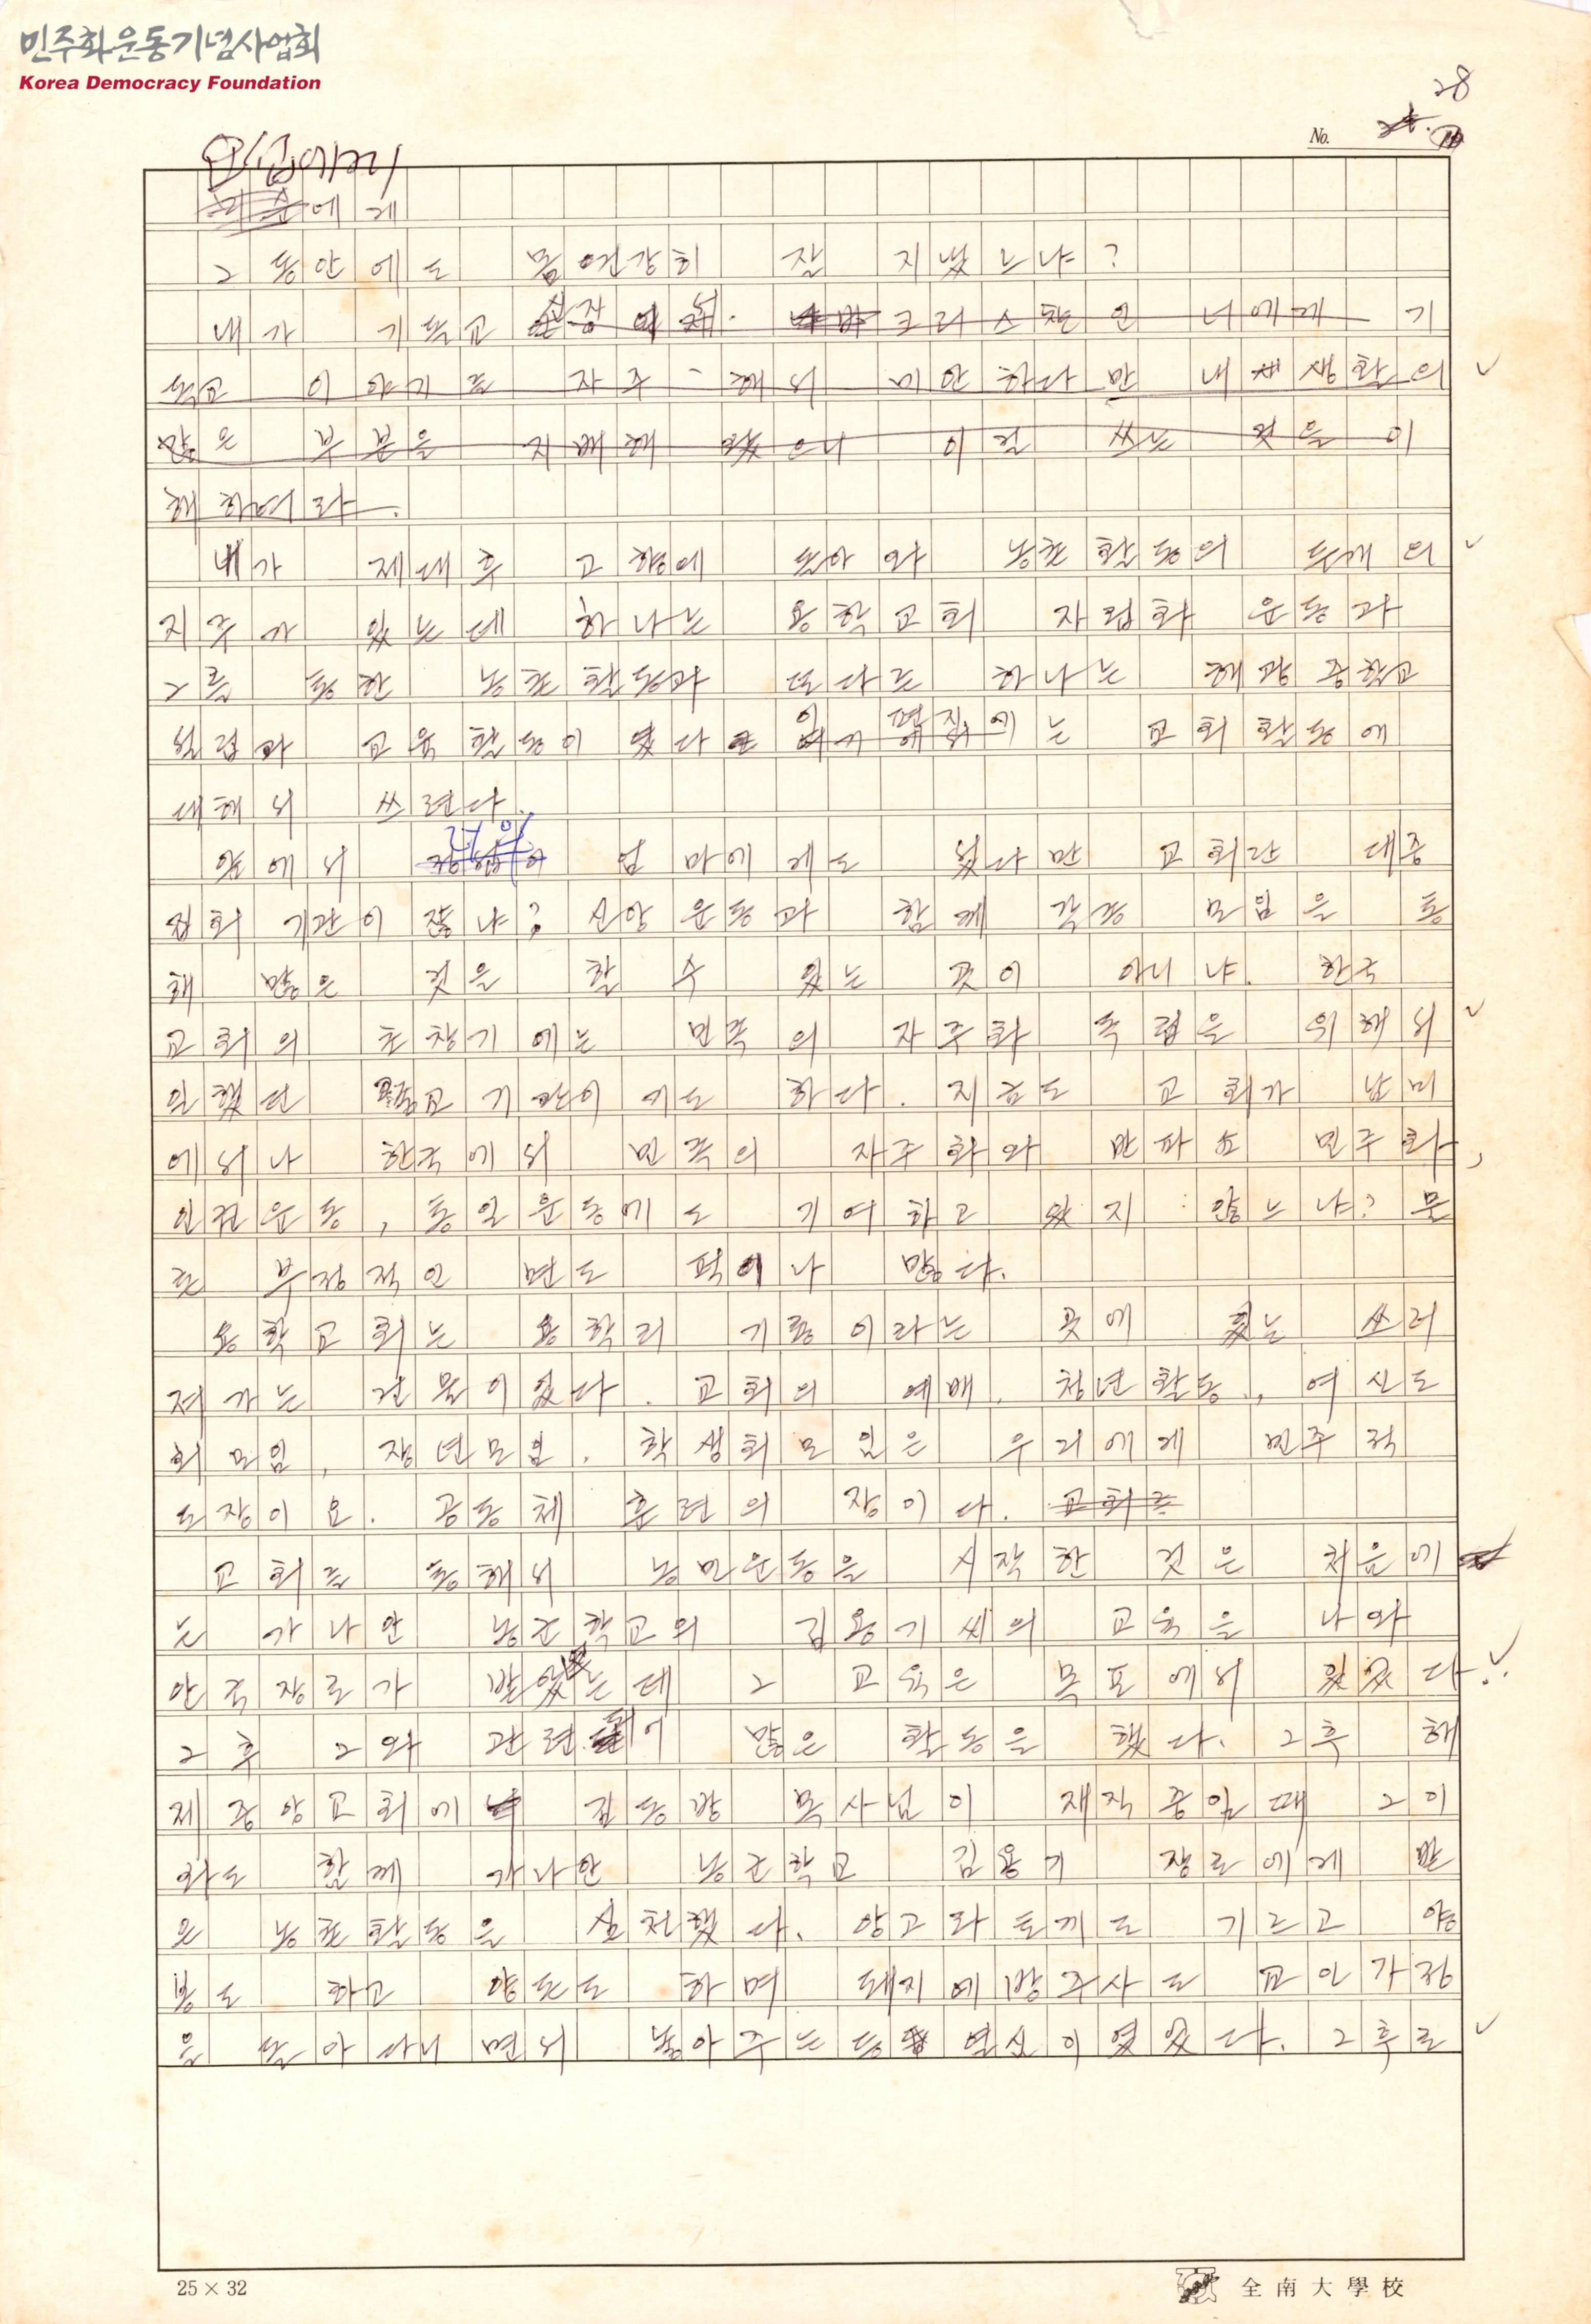 민주화운동기념사업회
Korea Democracy Foundation
28
No.
에게
그 동안에도 몸 건강히 잘 지냈느냐?
내가 기독교 크리스찬인 너에게 기
독교 이야기를 자주 해서 미안하다만 내 생활의
많은 부분을 지배해 왔으니 이런 쓰는 것을 이
해하여라.
내가 제대후 고향에 돌아와 농촌활동의 두개의
지주가 있는데 하나는 용학교회 자립화 운동과
그를 통한 농촌활동과 또 다른 하나는 해광중학교
설립과 교육활동이 었다 이 편지에는 교회활동에
대해서 쓰련다.
옷에서 엄마에게도 썼다만 교회란 대중
집회 기관이 잖냐? 신앙운동과 함께 각종 모임을 통
해 많은 것을 할 수 있는 곳이 아니냐. 한국
교회의 초창기에는 민족의 자주와 독립을 위해서
일했던 종교기관이기도 하다. 지금도 교회가 남미
에서나 한국에서 민족의 자주화와 반파쇼 민주화,
인권운동, 통일운동에도 기여하고 있지 않느냐? 물
론 부정적인 면도 퍽이나 많다.
용학교회는 용학리 기룡이라는 곳에 있는 쓰러
져가는 건물이었다. 교회의 예배, 청년활동, 여신도
회모임, 장년모임, 학생회모임은 우리에게 민주적
도장이요. 공동체 훈련의 장이다. 교회를
교회를 통해서 농민운동을 시작한 것은 처음에
는 가나안 농군학교의 김용기씨의 교육을 나와
안 장로가 받았는데 그 교육은 목포에서 있었다.
그후 그와 관련 많은 활동을 했다. 그후 해
제중앙교회에 김동 목사님이 재직중일때 그이
와도 함께 가나안 농군학교 김용기 장로에게 받
은 농촌활동을 실천했다. 앙고라토끼도 기르고 양
봉도 하고 양돈도 하며 돼지예방주사도 교인가정
을 돌아다니면서 놓아주는등 열심이 였었다. 그후로
25 × 32
全南大學校